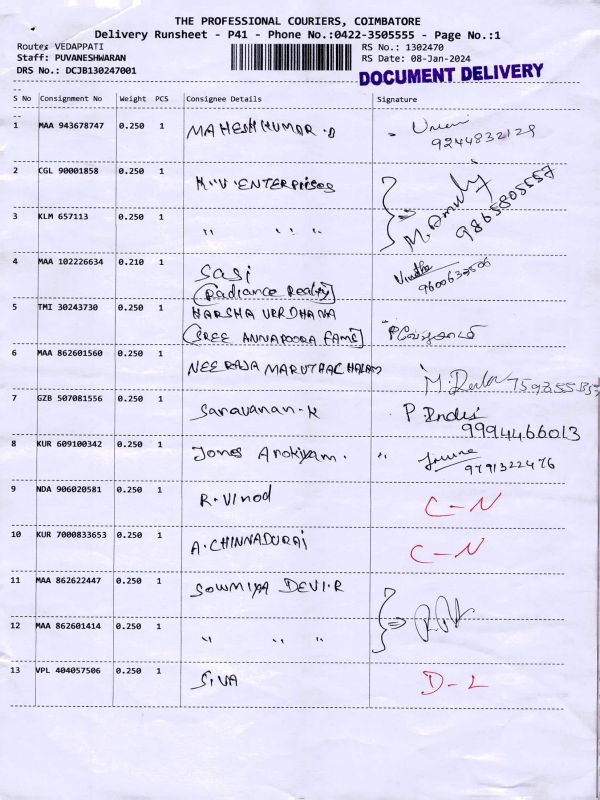 THE PROFESSIONAL COURIERS, COIMBATORE
Delivery Runsheet - P41 - Phone No.:0422-3505555 - Page No.:1
Route: VEDAPPATI RS No.: 1302470
Staff: PUVANESHWARAN RS Date: 08-Jan-2024
DRS No.: DCJB130247001
DOCUMENT DELIVERY
S No Consignment No Weight PCS Consignee Details Signature
1 MAA 943678747 0.250 1 MAHESHKUMAR.D
9244832129
2 CGL 90001858 0.250 1 M.V.ENTERPRISES
9865805557
3 KLM 657113 0.250 1 " " " "
4 MAA 102226634 0.210 1 Sasi
(Radiance Realty) 9600633506
5 TMI 30243730 0.250 1 HARSHA VERDHANA
(SREE ANNAPOORA FAME)
6 MAA 862601560 0.250 1 NEERAJA MARUTHACHALAM
7 GZB 507081556 0.250 1 Saravanan-K
9994466013
8 KUR 609100342 0.250 1 Jones Arokiyam. "
9791322476
9 NDA 906020581 0.250 1 R.Vinod C-N
10 KUR 7000833653 0.250 1 A.CHINNADURAI C-N
11 MAA 862622447 0.250 1 SOWMIYA DEVI.R
12 MAA 862601414 0.250 1 " " "
13 VPL 404057506 0.250 1 SIVA D-L